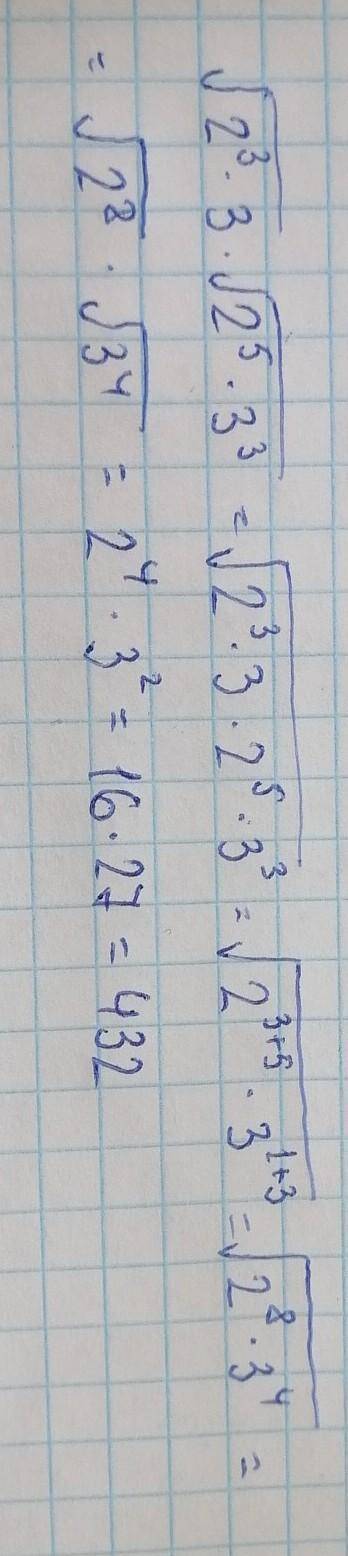 √(2³ · 3) · √(2⁵ · 3³) = √(2³ · 3 · 2⁵ · 3³) = √(2³⁺⁵ · 3¹⁺³) = √(2⁸ · 3⁴) =
= √(2⁸) · √(3⁴) = 2⁴ · 3² = 16 · 27 = 432